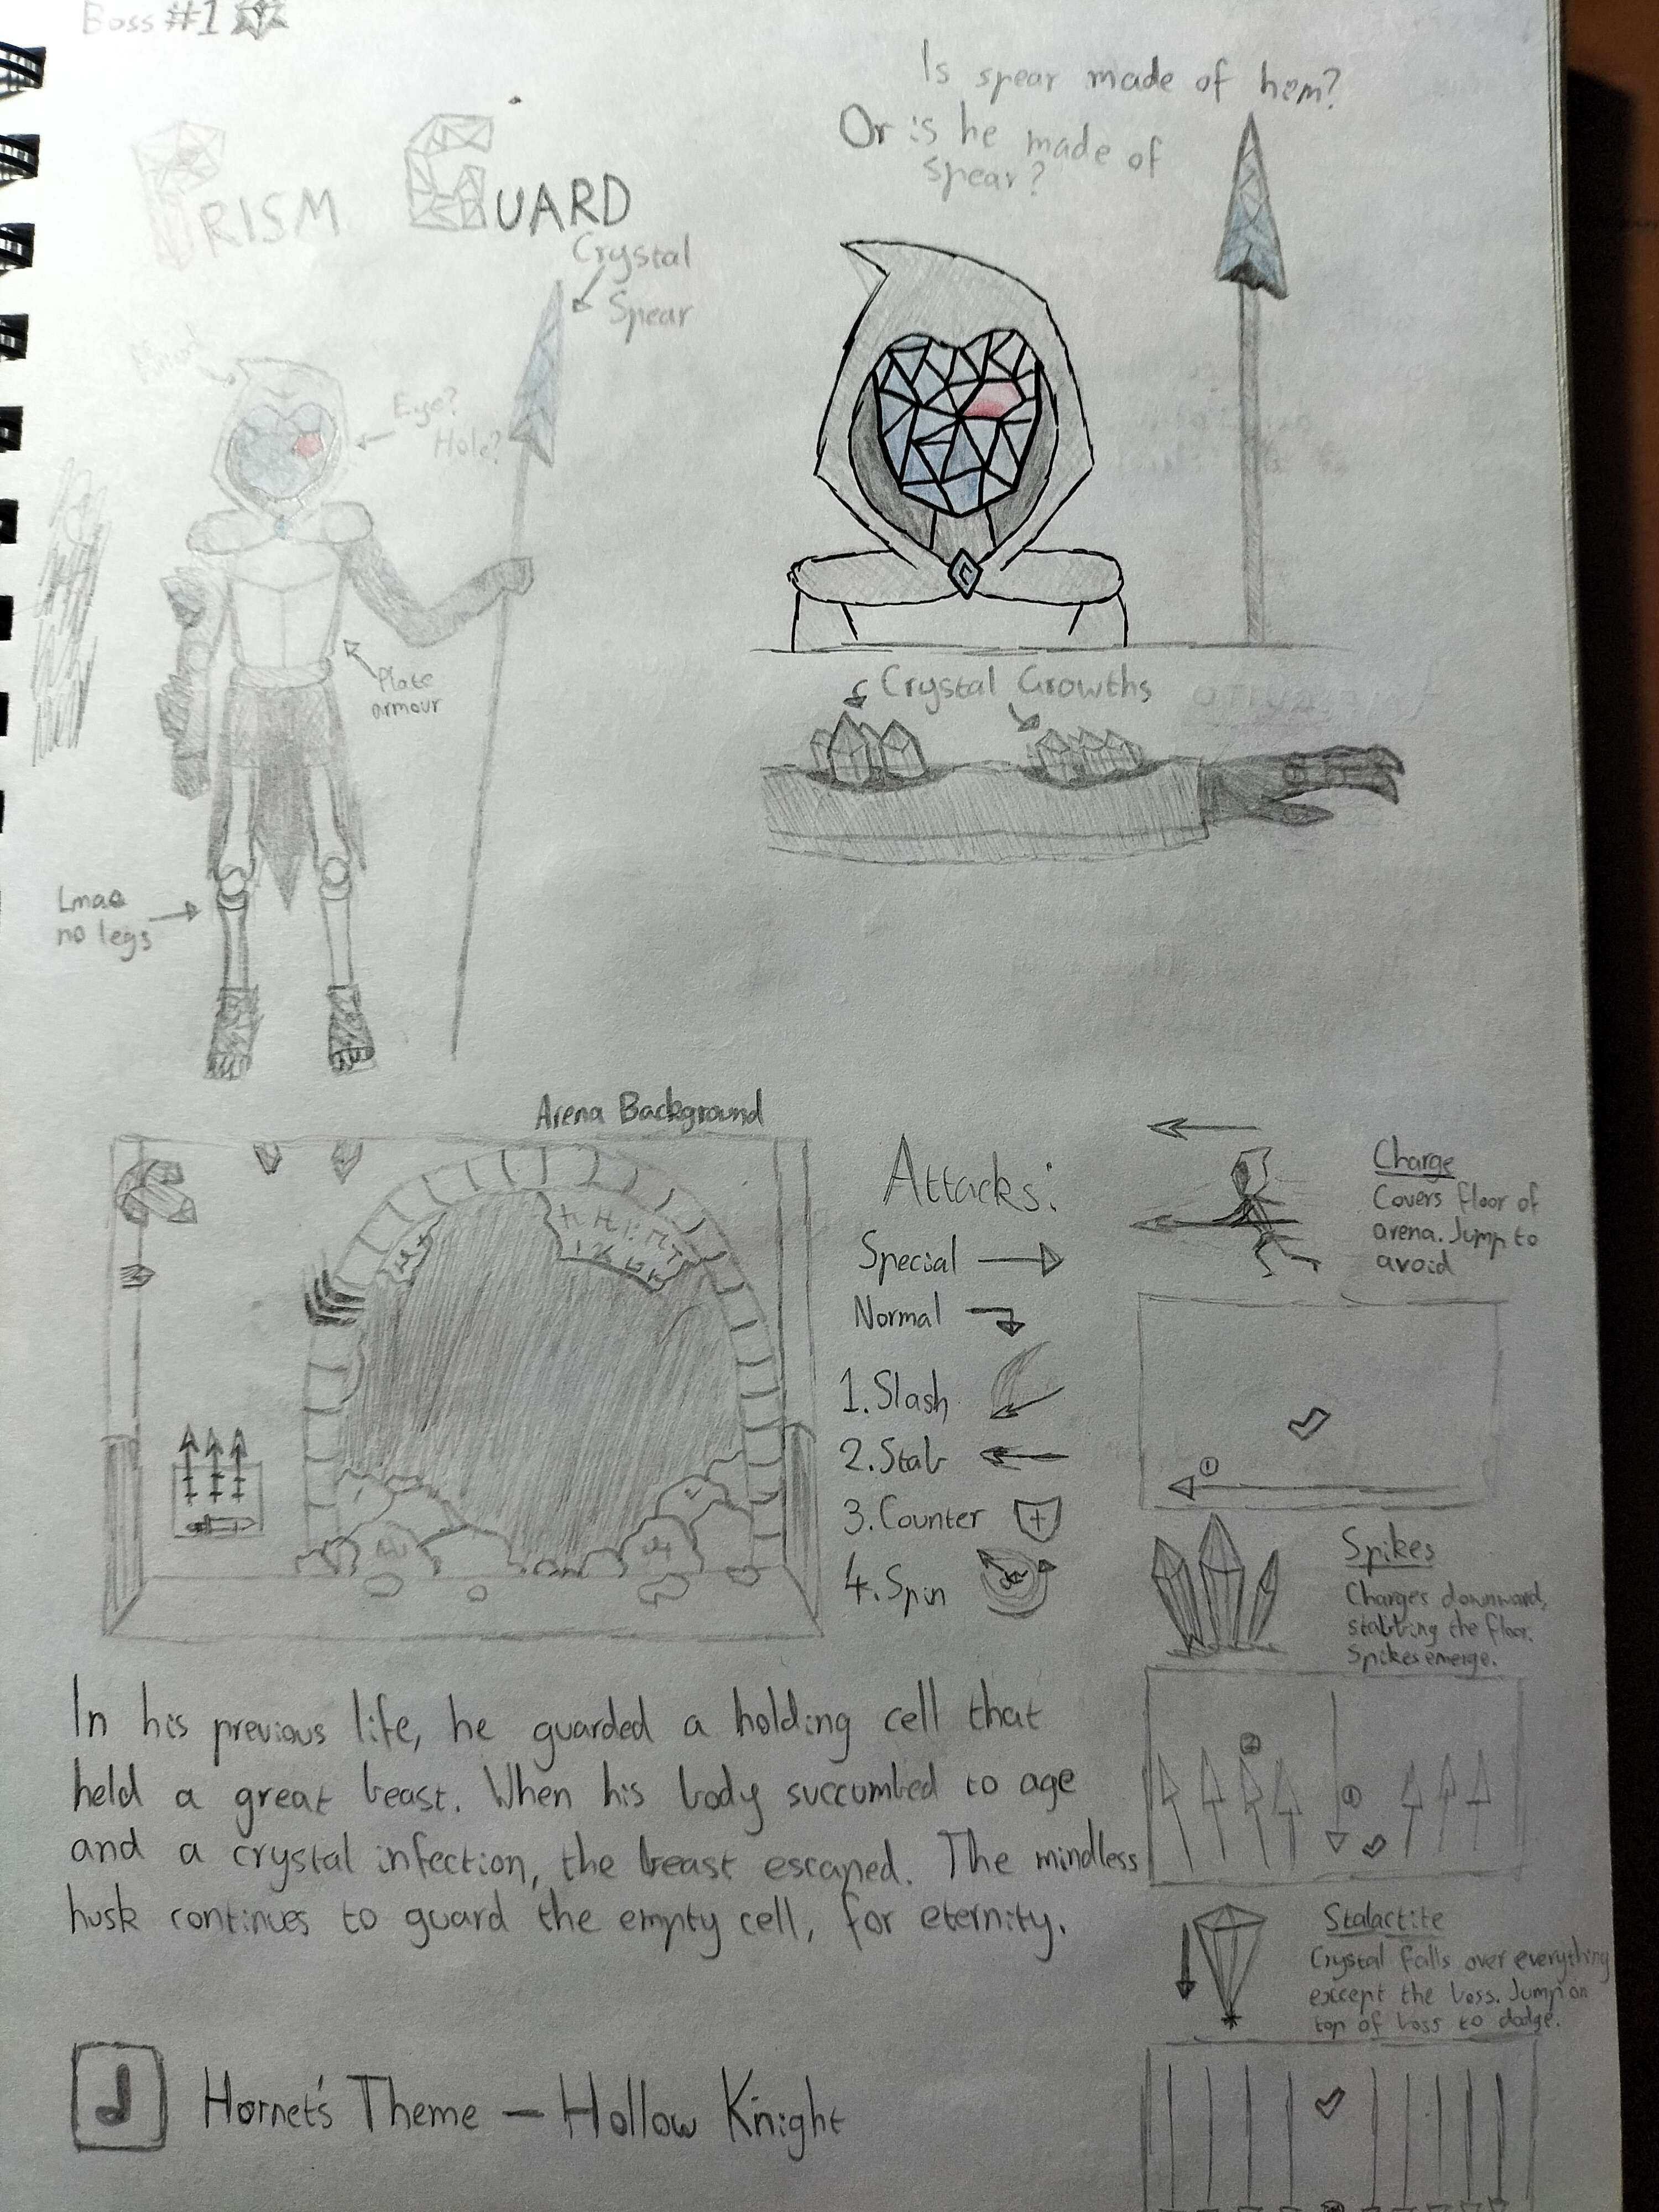 Boss #1
PRISM GUARD
Is spear made of him?
Or is he made of
spear?
Crystal
Spear
Eye?
Hole?
Plate
armour
Lmao
no legs
Crystal Growths
Arena Background
Attacks:
Special
Normal
1. Slash
2. Stab
3. Counter
4. Spin
Charge
Covers floor of
arena. Jump to
avoid
1
Spikes
Charges downward,
stabbing the floor.
Spikes emerge.
2
1
Stalactite
Crystal falls over everything
except the boss. Jump on
top of boss to dodge.
In his previous life, he guarded a holding cell that
held a great beast. When his body succumbed to age
and a crystal infection, the beast escaped. The mindless
husk continues to guard the empty cell, for eternity.
Hornet's Theme — Hollow Knight